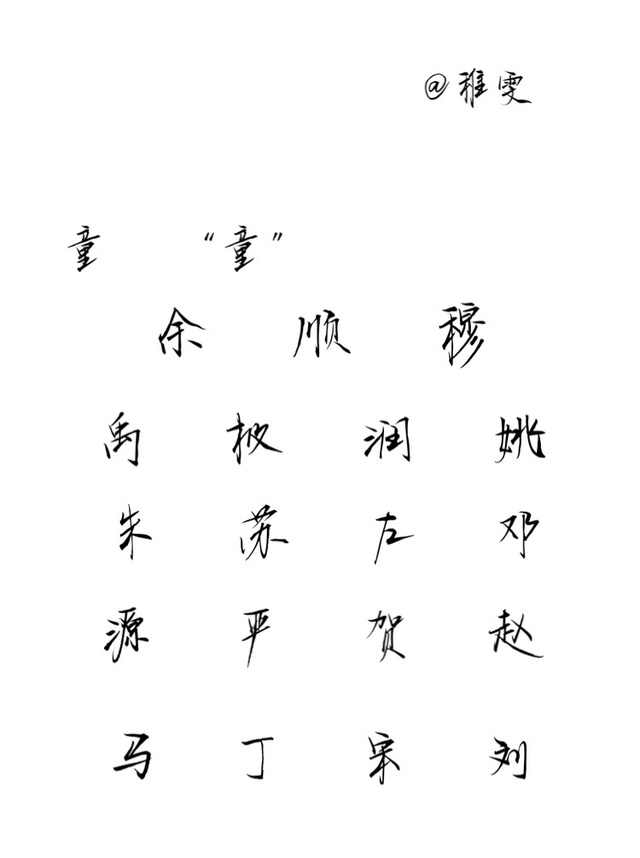 @稚雯
童 “童”
余 顺 穆
禹 披 润 姚
朱 苏 左 邓
源 严 贺 赵
马 丁 宋 刘